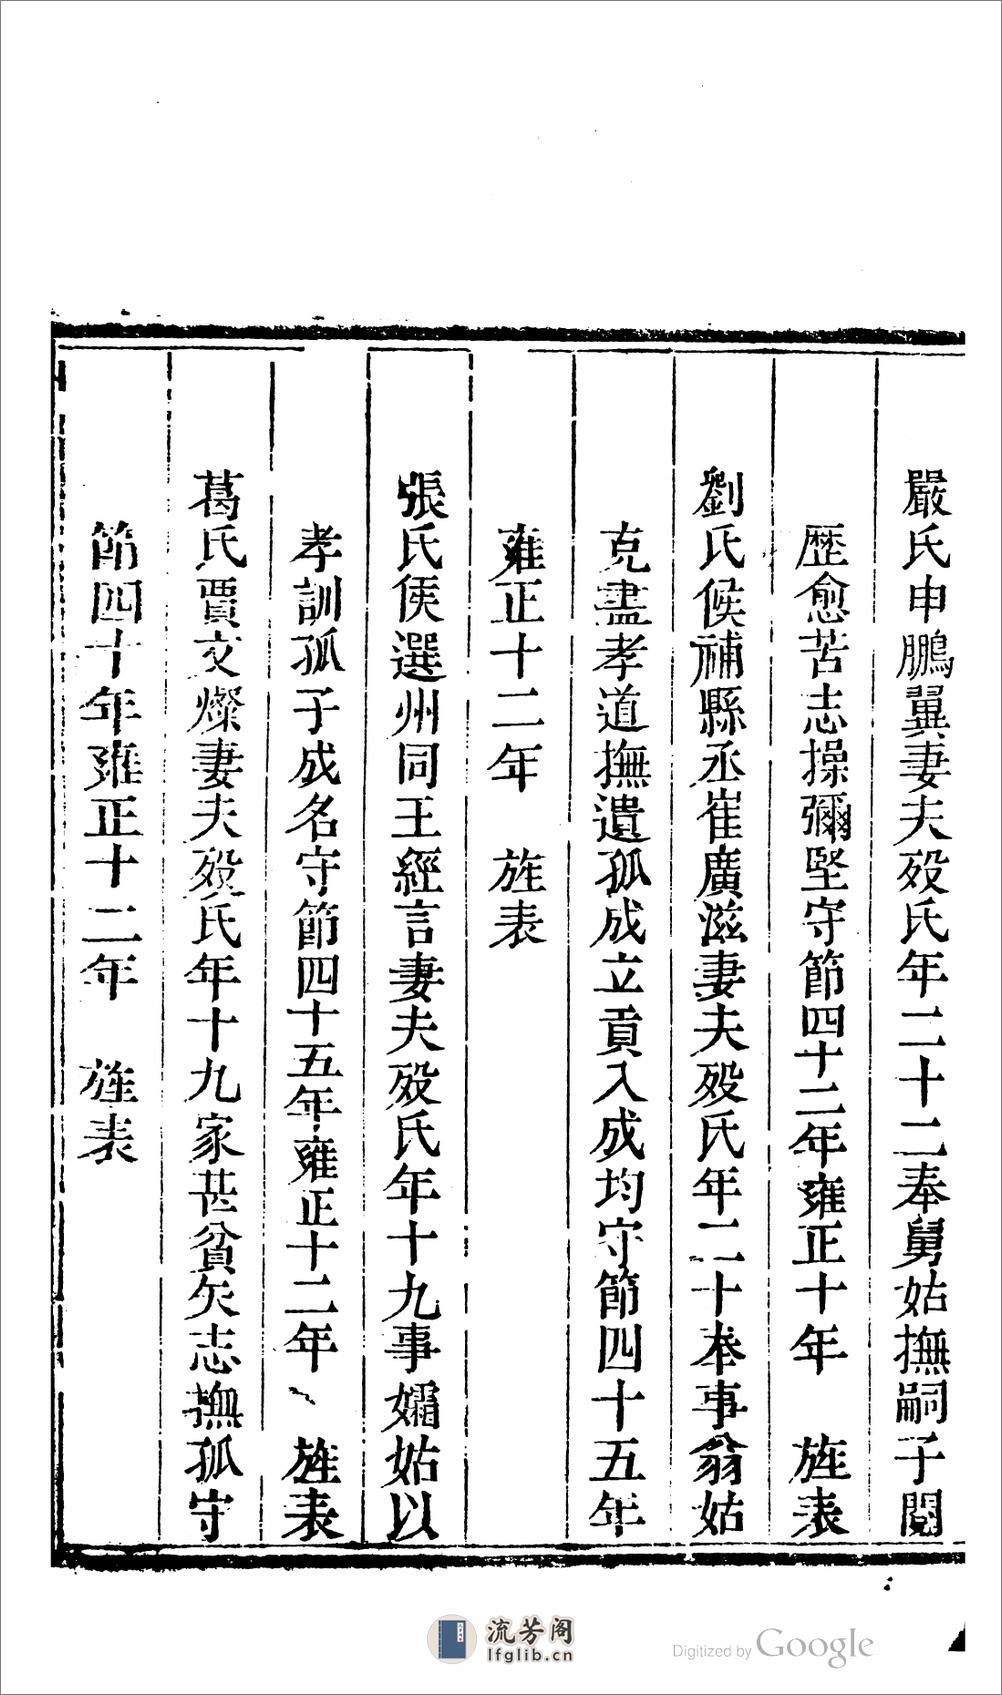 嚴氏申鵬翼妻夫歿氏年二十二奉舅姑撫嗣子閱
歴愈苦志操彌堅守節四十二年雍正十年　旌表
劉氏候補縣丞崔廣滋妻夫歿氏年二十奉事翁姑
克盡孝道撫遺孤成立貢入成均守節四十五年
雍正十二年　旌表
張氏侯選州同王經言妻夫歿氏年十九事孀姑以
孝訓孤子成名守節四十五年雍正十二年　旌表
葛氏賈文燦妻夫歿氏年十九家甚貧矢志撫孤守
節四十年雍正十二年　旌表
流芳阁
lfglib.cn
Digitized by Google